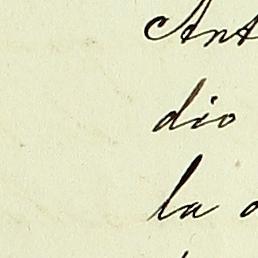 Ant
dio
la